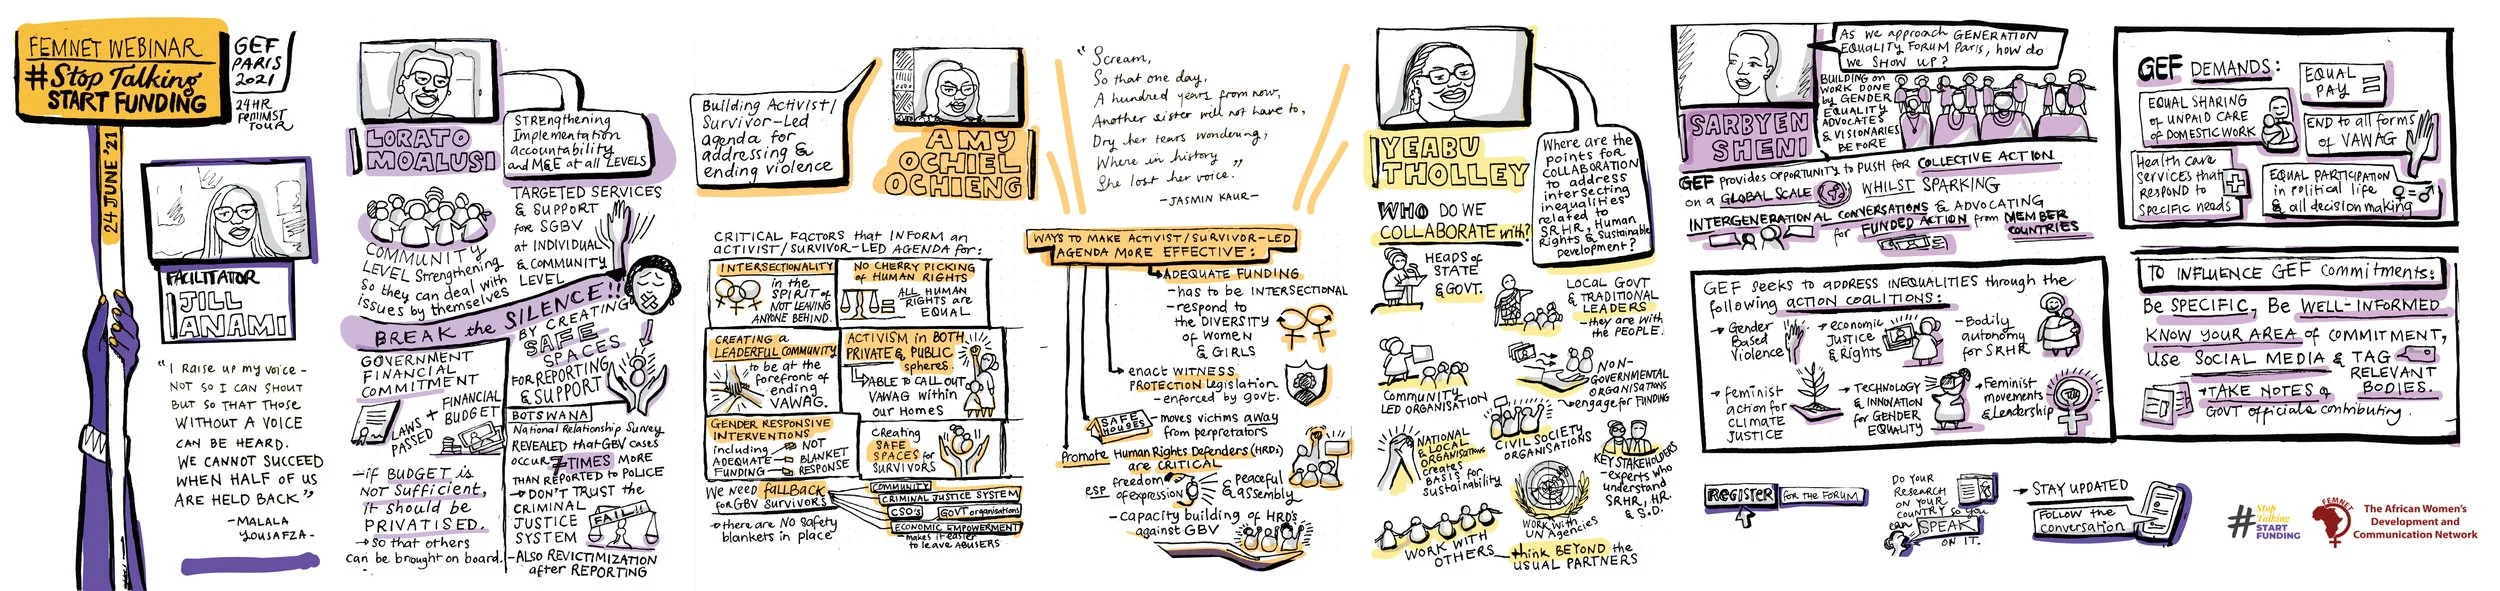 FEMNET WEBINAR
#Stop Talking
START FUNDING
GEF
PARIS
2021
24HR
FEMINIST
TOUR
24 JUNE '21
FACILITATOR
JILL
ANAMI
"I RAISE UP MY VOICE -
NOT SO I CAN SHOUT
BUT SO THAT THOSE
WITHOUT A VOICE
CAN BE HEARD.
WE CANNOT SUCCEED
WHEN HALF OF US
ARE HELD BACK"
- MALALA
YOUSAFZA -
LORATO
MOALUSI
STRENGTHENING
Implementation
accountability
and M&E at all LEVELS
COMMUNITY
LEVEL Strengthening
So they can deal with
issues by themselves
TARGETED SERVICES
& SUPPORT
for SGBV
at INDIVIDUAL
& COMMUNITY
LEVEL
BREAK the SILENCE!!
BY CREATING
SAFE
SPACES
FOR REPORTING
& SUPPORT
GOVERNMENT
FINANCIAL
COMMITMENT
LAWS
PASSED
+
FINANCIAL
BUDGET
- if BUDGET is
NOT Sufficient,
it should be
PRIVATISED.
→ so that others
can be brought on board.
BOTSWANA
National Relationship Survey
REVEALED that GBV cases
occur 7 TIMES MORE
THAN REPORTED to POLICE
→ DON'T TRUST the
CRIMINAL
JUSTICE
SYSTEM
FAIL!!
- ALSO REVICTIMIZATION
after REPORTING
Building Activist/
Survivor-Led
agenda for
addressing &
ending violence
AMY
OCHIEL
OCHIENG
CRITICAL FACTORS that INFORM an
ACTIVIST/SURVIVOR-LED AGENDA for:
INTERSECTIONALITY
in the
SPIRIT of
NOT LEAVING
ANYONE BEHIND.
NO CHERRY PICKING
of HUMAN RIGHTS
=
ALL HUMAN
RIGHTS are
EQUAL
CREATING a
LEADERFUL COMMUNITY
to be at the
forefront of
ending
VAWAG.
ACTIVISM in BOTH
PRIVATE & PUBLIC
spheres.
↳ ABLE to CALL OUT
VAWAG within
our Homes
GENDER RESPONSIVE
INTERVENTIONS
including
ADEQUATE
FUNDING
NOT
BLANKET
RESPONSE
Creating
SAFE
SPACES for
SURVIVORS
WE NEED fallBACK
for GBV SURVIVORS
→ there are NO safety
blankets in place
COMMUNITY
CRIMINAL JUSTICE SYSTEM
CSO's
GOVT organisations
ECONOMIC EMPOWERMENT
- makes it easier
to leave ABUSERS
"Scream,
So that one day,
A hundred years from now,
Another sister will not have to,
Dry her tears wondering,
Where in history
She lost her voice."
- JASMIN KAUR -
WAYS to MAKE ACTIVIST/SURVIVOR-LED
AGENDA MORE EFFECTIVE:
→ ADEQUATE FUNDING
- has to be INTERSECTIONAL
- respond to
the DIVERSITY
of WOMEN
& GIRLS
enact WITNESS
PROTECTION legislation
- enforced by govt.
SAFE
HOUSES
- moves victims away
from perpretators
Promote Human Rights Defenders (HRDs)
are CRITICAL
esp
freedom
of expression
&
Peaceful
assembly
- capacity building of HRD's
against GBV
YEABU
THOLLEY
Where are the
points for
COLLABORATION
to address
intersecting
inequalities
related to
SRHR, Human
Rights & Sustainable
development?
WHO DO WE
COLLABORATE with?
HEADS of
STATE
& GOVT.
LOCAL GOVT
& TRADITIONAL
LEADERS
- they are with
the PEOPLE.
COMMUNITY
LED ORGANISATION
NON-
GOVERNMENTAL
ORGANISATIONS
→ engage for FUNDING
NATIONAL
& LOCAL
ORGANISATIONS
creates
BASIS for
sustainability
CIVIL SOCIETY
ORGANISATIONS
KEY STAKEHOLDERS
- experts who
understand
SRHR, HR.
& S.D.
WORK with
UN Agencies
WORK WITH
OTHERS
- think BEYOND the
USUAL PARTNERS
SARBYEN
SHENI
As we approach GENERATION
EQUALITY FORUM Paris, how do
we SHOW UP?
BUILDING on
WORK DONE
by GENDER
EQUALITY
ADVOCATES
& VISIONARIES
BEFORE
GEF provides opportunity to push for COLLECTIVE ACTION
on a GLOBAL SCALE WHILST SPARKING
INTERGENERATIONAL CONVERSATIONS & ADVOCATING
for FUNDED ACTION from MEMBER
COUNTRIES
GEF seeks to address INEQUALITIES through the
following ACTION COALITIONS:
→ Gender
Based
Violence
→ economic
Justice
& Rights
- Bodily
autonomy
for SRHR
→ feminist
action for
CLIMATE
JUSTICE
→ TECHNOLOGY
& INNOVATION
for GENDER
EQUALITY
→ Feminist
movements
& Leadership
REGISTER for the FORUM
DO YOUR
RESEARCH
ON YOUR
COUNTRY so you
can SPEAK
ON IT.
→ STAY UPDATED
FOLLOW the
conversation
GEF DEMANDS:
EQUAL
PAY
EQUAL SHARING
of UNPAID CARE
of DOMESTIC WORK
END to all forms
of VAWAG
Health care
services that
respond to
specific needs
EQUAL PARTICIPATION
in political life
& all decision making
♀=♂
TO INFLUENCE GEF Commitments:
Be SPECIFIC, Be WELL-INFORMED
KNOW YOUR AREA of COMMITMENT,
Use SOCIAL MEDIA & TAG
RELEVANT
BODIES.
→ TAKE NOTES of
GOVT officials contributing.
#Stop
Talking
START
FUNDING
FEMNET
The African Women's
Development and
Communication Network